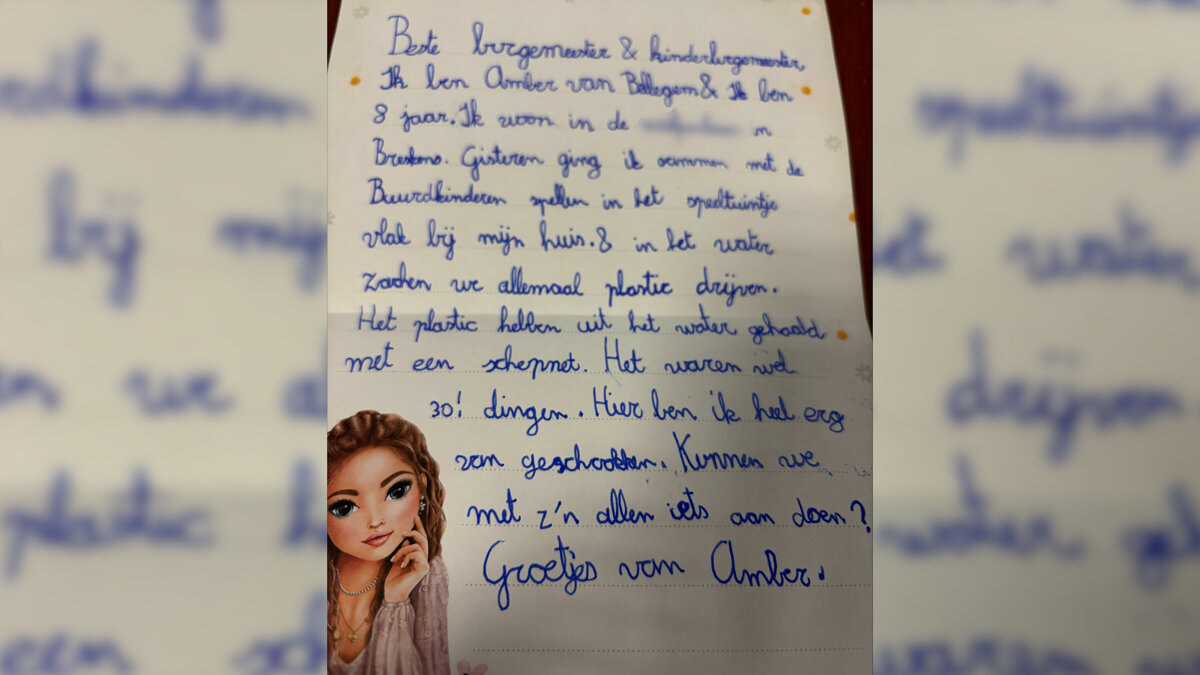 Beste burgemeester & kinderburgemeester,
Ik ben Amber van Bellegem & Ik ben
8 jaar. Ik woon in de in
Breskens. Gisteren ging ik sammen met de
Buurdkinderen spellen in het speeltuintje
vlak bij mijn huis. & in het water
zachen we allemaal plastic drijven.
Het plastic hebben uit het water gehaald
met een schepnet. Het waren wel
30! dingen. Hier ben ik heel erg
van geschrokken. Kunnen we
met z'n allen iets aan doen?
Groetjes van Amber.